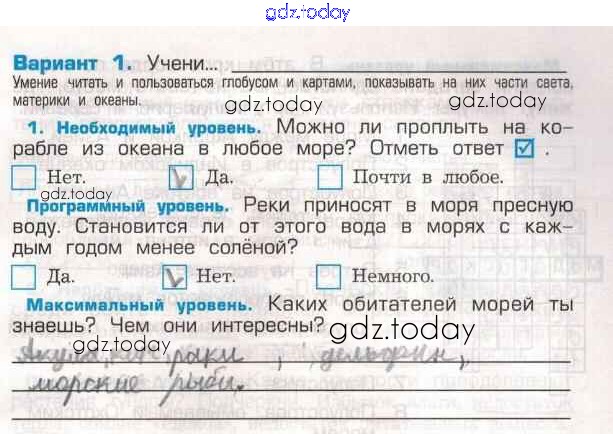 gdz.today
Вариант 1. Учени...
Умение читать и пользоваться глобусом и картами, показывать на них части света,
материки и океаны.
gdz.today
gdz.today
1. Необходимый уровень. Можно ли проплыть на ко-
рабле из океана в любое море? Отметь ответ ☑ .
Нет. Да. Почти в любое.
gdz.today
Программный уровень. Реки приносят в моря пресную
воду. Становится ли от этого вода в морях с каж-
дым годом менее солёной?
Да. Нет. Немного.
Максимальный уровень. Каких обитателей морей ты
знаешь? Чем они интересны?
gdz.today
Акула, раки, дельфин,
морские рыби.